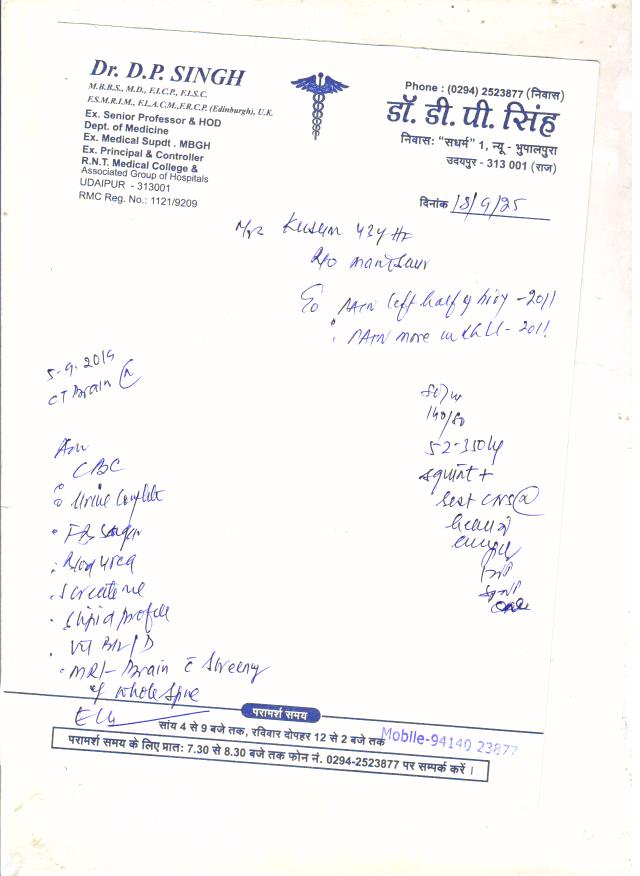 Dr. D.P. SINGH
M.B.B.S., M.D., F.I.C.P., F.I.S.C.
F.S.M.R.I.M., F.I.A.C.M., F.R.C.P. (Edinburgh), U.K.
Ex. Senior Professor & HOD
Dept. of Medicine
Ex. Medical Supdt . MBGH
Ex. Principal & Controller
R.N.T. Medical College &
Associated Group of Hospitals
UDAIPUR - 313001
RMC Reg. No.: 1121/9209
Phone : (0294) 2523877 (निवास)
डॉ. डी. पी. सिंह
निवासः "सधर्म" 1, न्यू - भुपालपुरा
उदयपुर - 313 001 (राज)
दिनांक 18/9/25
Kusum 43y
R/o
left half of body - 2011
more in - 2011
5-9-2019
CT Brain (N)
80/m
140/80
squint +
rest CNS (N)
CBC
Urine Complete
FB Sugar
Blood Urea
S creatine
S lipid profile
Vit B12/D
MRI - Brain c̄ Screeny
of whole spine
परामर्श समय
सांय 4 से 9 बजे तक, रविवार दोपहर 12 से 2 बजे तक
Mobile-94140 23877
परामर्श समय के लिए प्रातः 7.30 से 8.30 बजे तक फोन नं. 0294-2523877 पर सम्पर्क करें ।